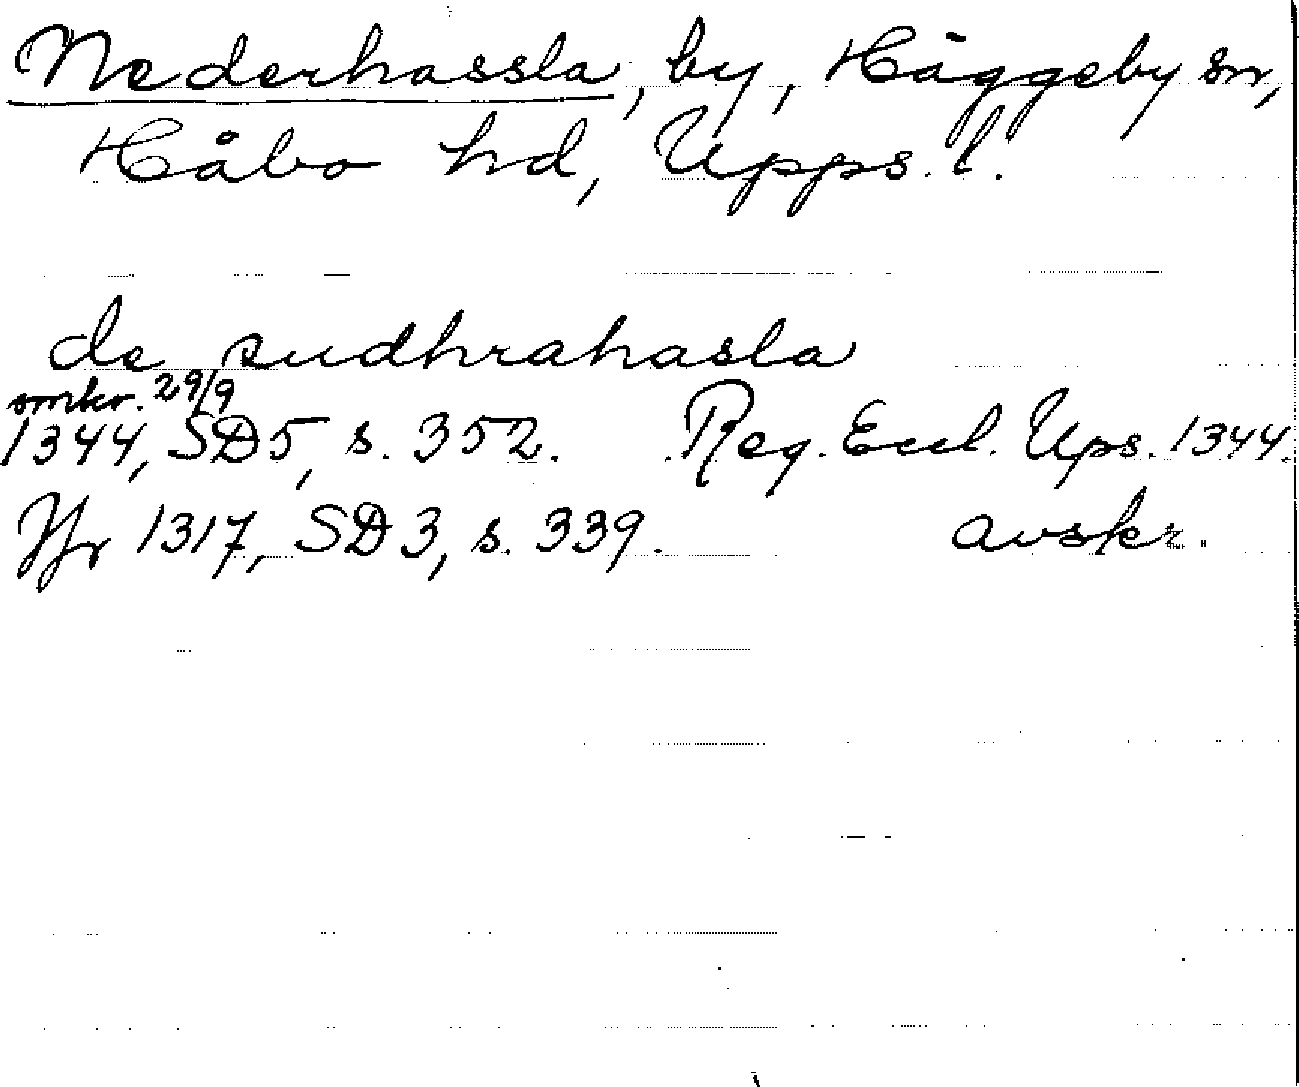 Nederhassla, by, Häggeby sn,
Håbo hd, Upps. l.
de sudhrahasla
omkr. 29/9
1344, SD5, s. 352. Reg. Eccl. Ups. 1344.
Jfr 1317, SD3, s. 339. avskr.